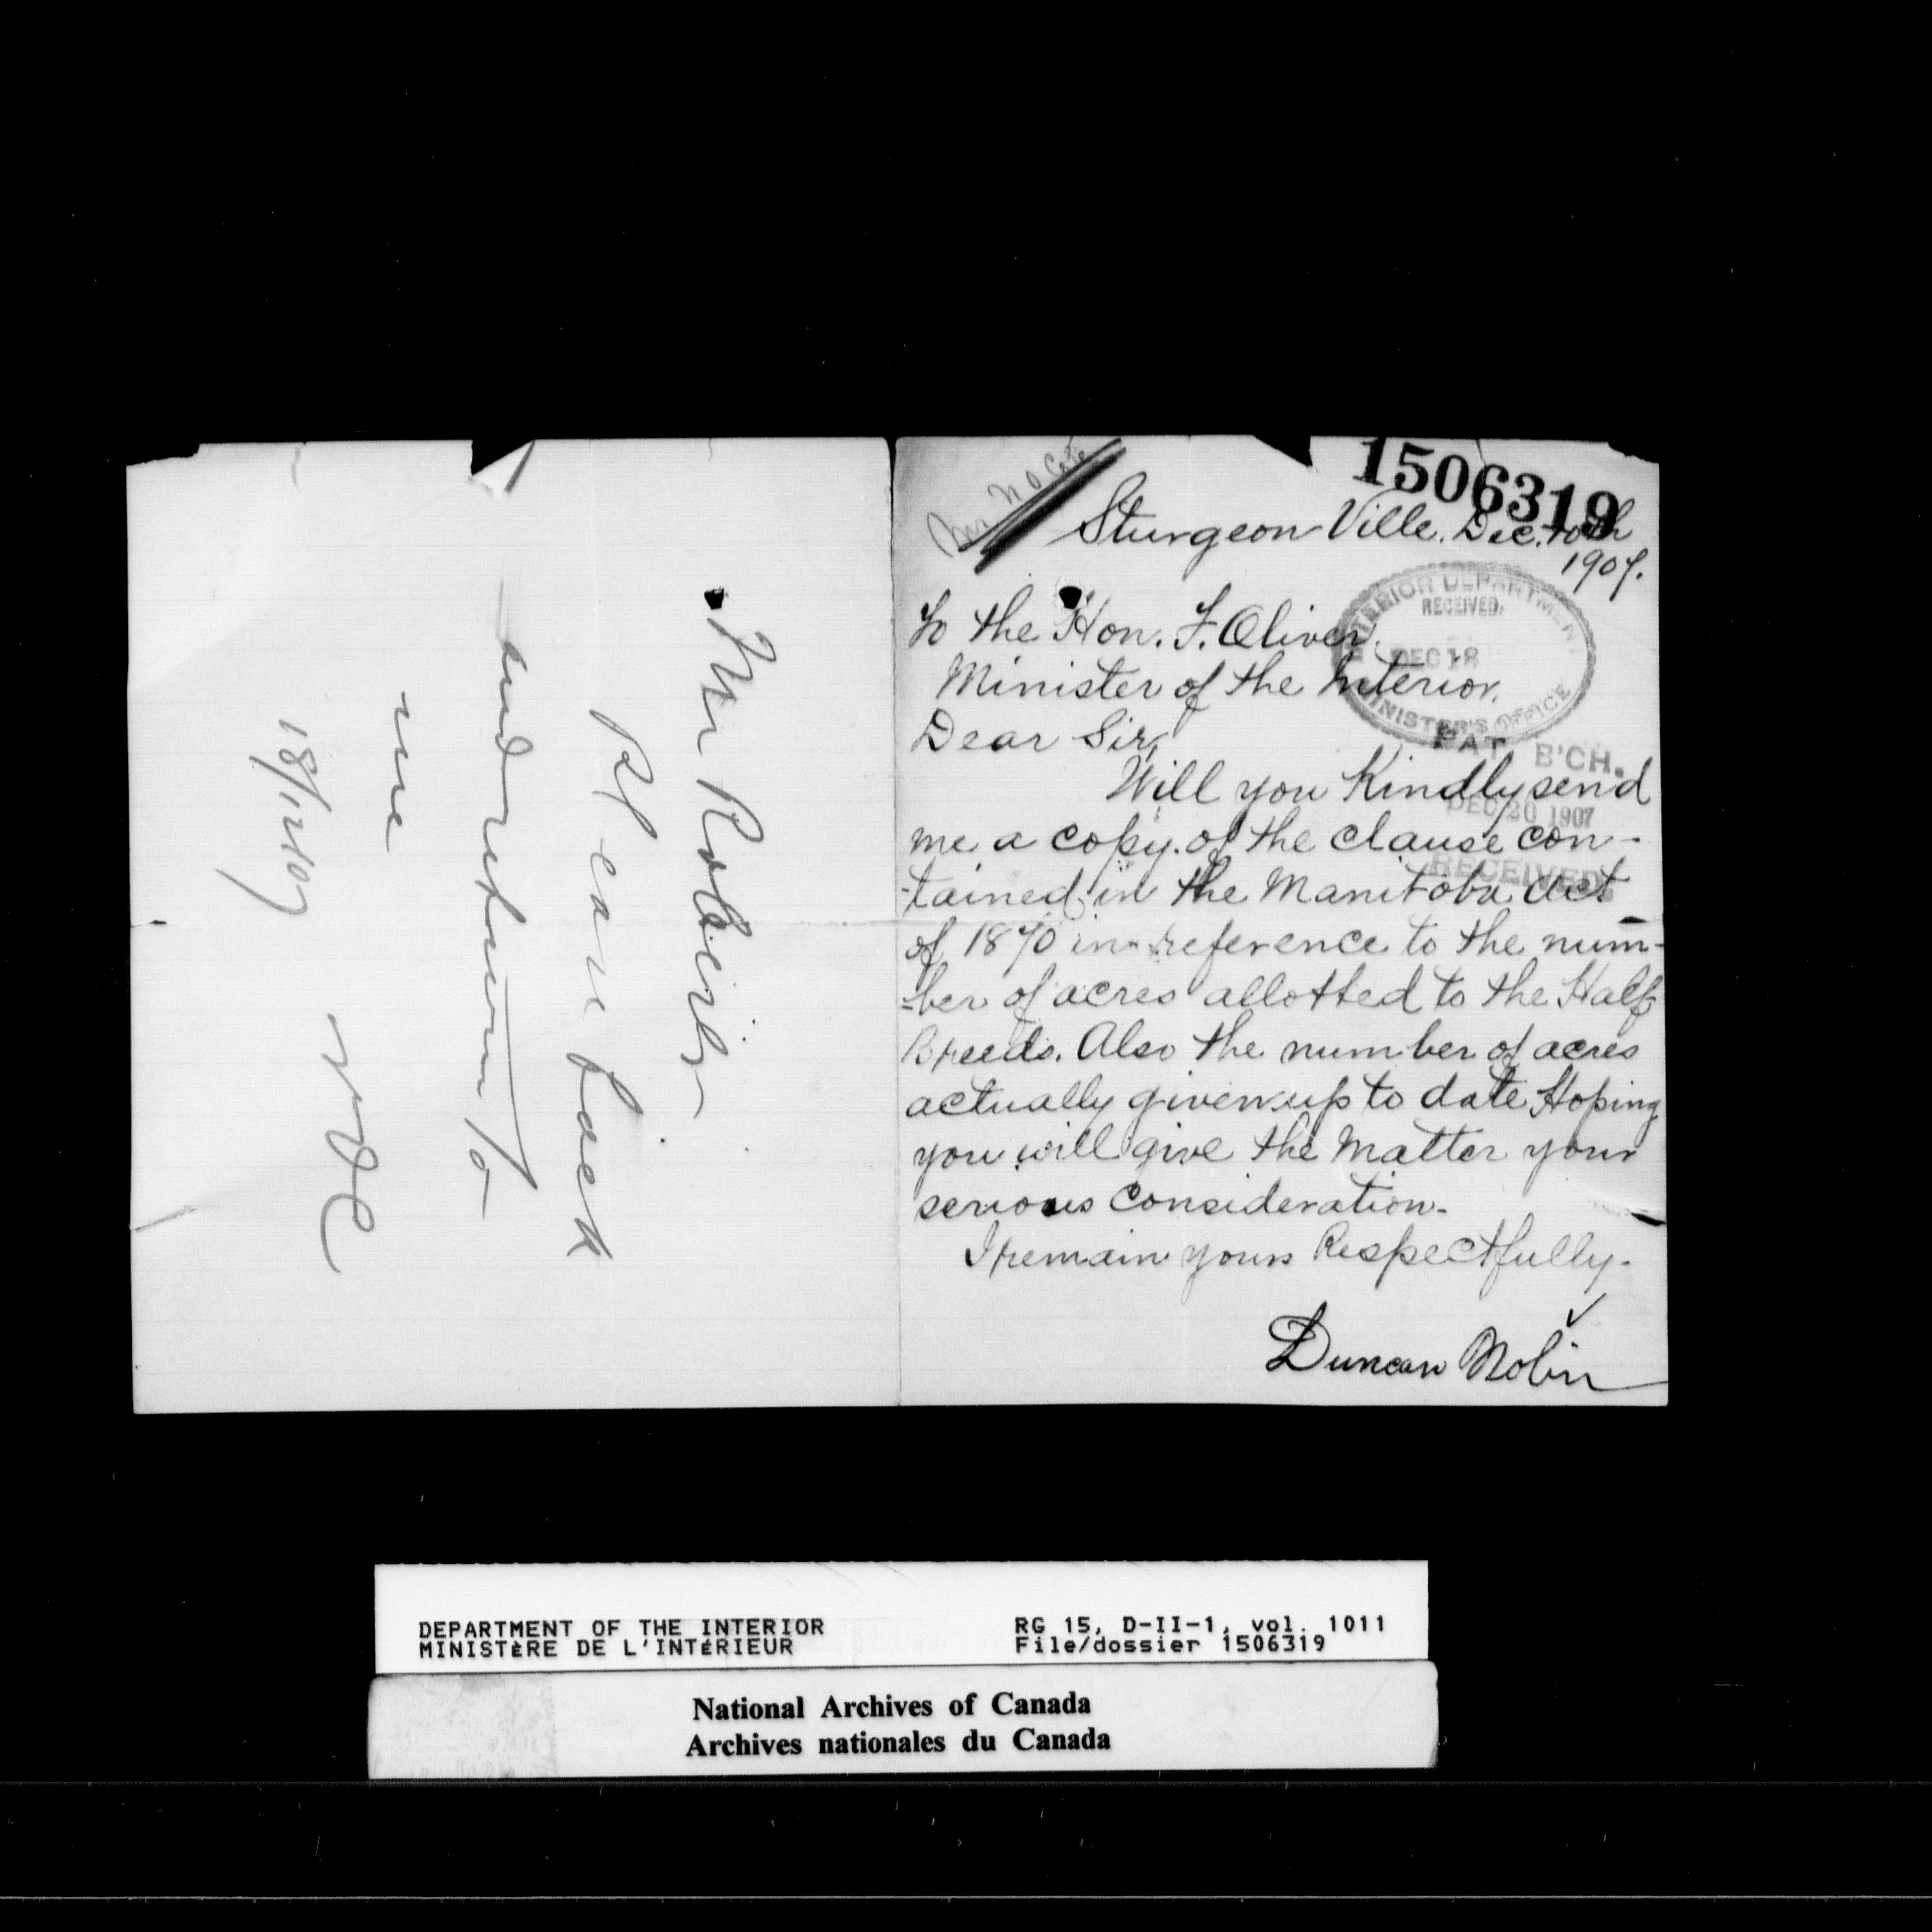 Mr Roberts
Pl case back
and return to
me
18/12/07
1506319
Sturgeon Ville. Dec. 10th
1907.
INTERIOR DEPARTMENT
RECEIVED.
DEC 18
MINISTER'S OFFICE
To the Hon. F. Oliver.
Minister of the Interior.
Dear Sir,
PAT B'CH.
DEC 20 1907
RECEIVED
Will you Kindly send
me a copy. of the clause con-
-tained in the Manitoba Act
of 1870 in reference to the num-
-ber of acres allotted to the Half
Breeds. Also the number of acres
actually given up to date. Hoping
you will give the Matter your
serious Consideration.
I remain yours Respectfully.
Duncan Nolin
DEPARTMENT OF THE INTERIOR
MINISTÈRE DE L'INTÉRIEUR
RG 15, D-II-1, vol. 1011
File/dossier 1506319
National Archives of Canada
Archives nationales du Canada